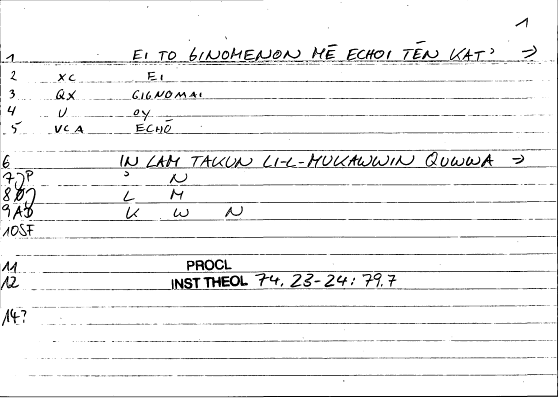 1
1 EI TO GINOMENON MĒ ECHOI TĒN KAT' →
2 XC EI
3 QX GIGNOMAI
4 U OY
5 VCA ECHŌ
6 IN LAM TAKUN LI-L-MUKAWWIN QUWWA →
7 P ' N
8 L M
9 K W N
10 SF
11 PROCL
12 INST THEOL 74. 23-24: 79.7
14?